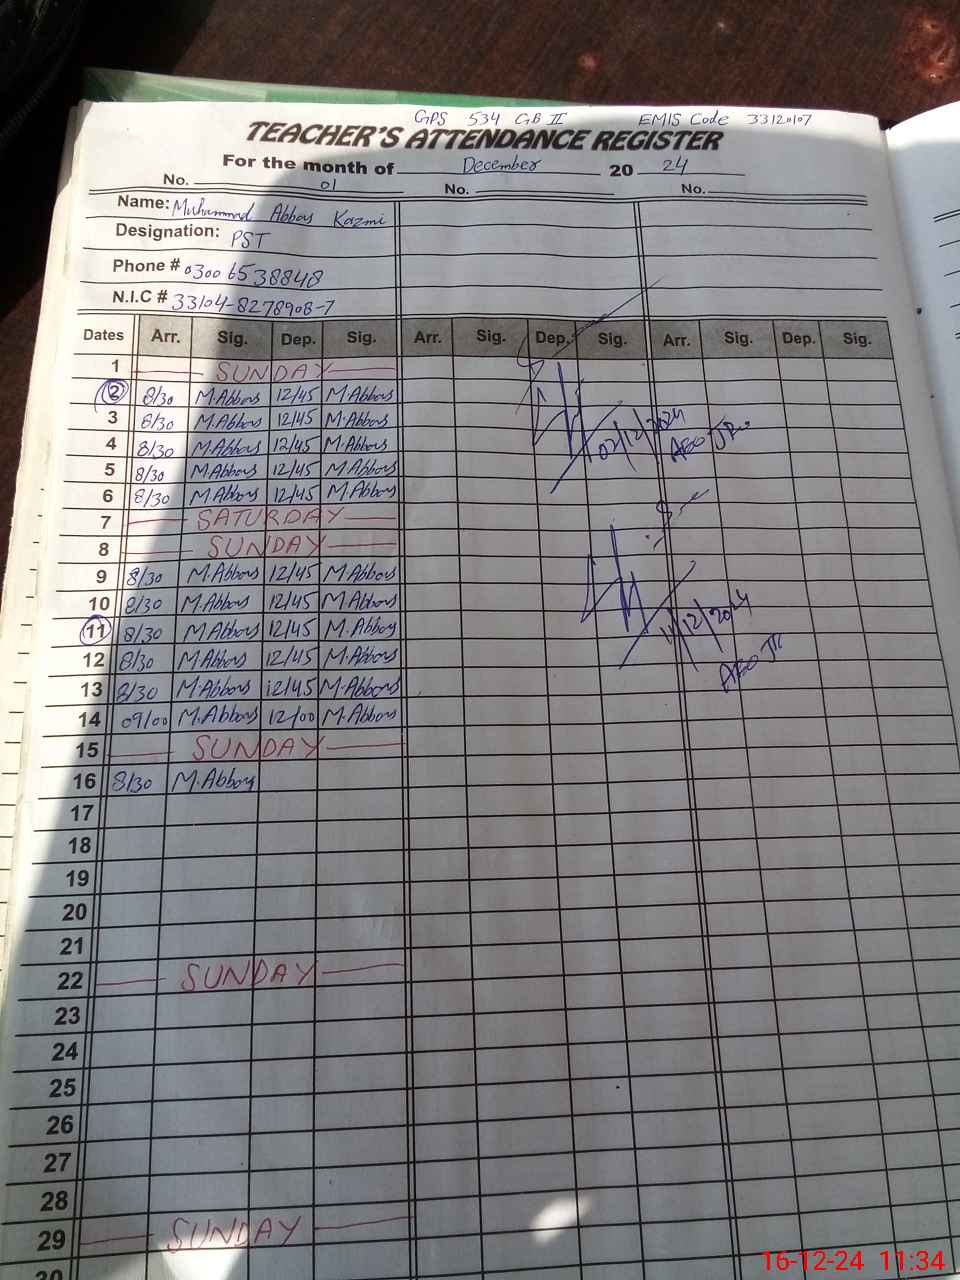 GPS 534 GB II EMIS Code 33120107
TEACHER'S ATTENDANCE REGISTER
For the month of December 20 24
No. 01 No. No.
Name: Muhammad Abbas Kazmi
Designation: PST
Phone # 0300 6538848
N.I.C # 33104-8278908-7
Dates Arr. Sig. Dep. Sig. Arr. Sig. Dep. Sig. Arr. Sig. Dep. Sig.
1 SUNDAY
2 8/30 M.Abbas 12/45 M.Abbas
3 8/30 M.Abbas 12/45 M.Abbas
02/12/2024
4 8/30 M.Abbas 12/45 M.Abbas
AEO JR
5 8/30 M.Abbas 12/45 M.Abbas
6 8/30 M.Abbas 12/45 M.Abbas
7 SATURDAY
8 SUNDAY
9 8/30 M.Abbas 12/45 M.Abbas
10 8/30 M.Abbas 12/45 M.Abbas
11/12/2024
11 8/30 M.Abbas 12/45 M.Abbas
12 8/30 M.Abbas 12/45 M.Abbas
AEO JR
13 8/30 M.Abbas 12/45 M.Abbas
14 09/00 M.Abbas 12/00 M.Abbas
15 SUNDAY
16 8/30 M.Abbas
17
18
19
20
21
22 SUNDAY
23
24
25
26
27
28
29 SUNDAY
30
16-12-24 11:34